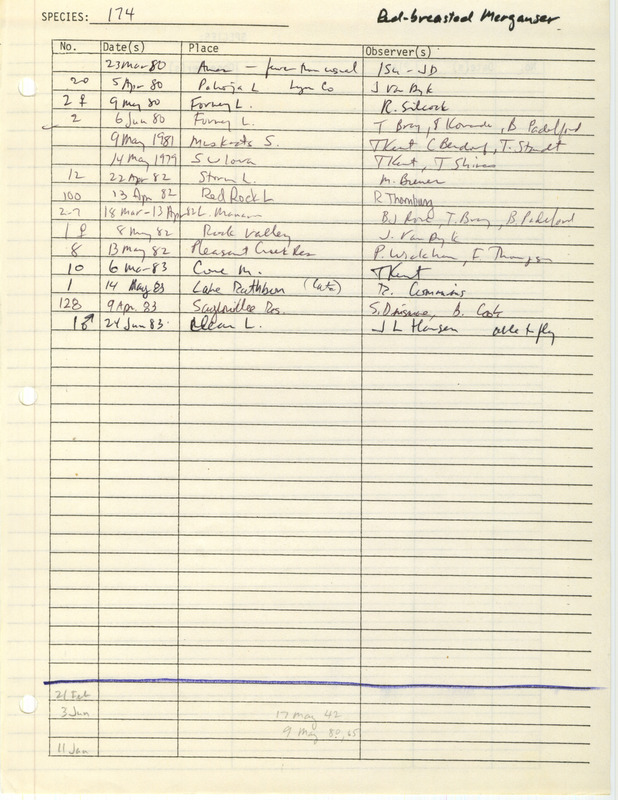 SPECIES: 174 Red-breasted Merganser
No. Date(s) Place Observer(s)
23 Mar 80 Ames - fewer than usual ISU - JD
20 5 Apr 80 Pahoja L Lyon Co J Van Dyk
2 ♀ 9 May 80 Forney L. R. Silcock
2 6 Jun 80 Forney L. T Bray, B Padelford
9 May 1981 Muskrats S. T Kent C Bendorf, T. Staudt
14 May 1979 SW Iowa T Kent, T Shires
12 22 Apr 82 Storm L. M. Brewer
100 13 Apr 82 Red Rock L R Thornburg
2-7 18 Mar-13 Apr 82 L. Manawa BJ Rose, T. Bray, B Padelford
1 ♀ 8 May 82 Rock Valley J. Van Dyk
8 13 May 82 Pleasant Creek Res P. Wickham, F. Thompson
10 6 Mar 83 Cone M. T Kent
1 14 May 83 Lake Rathbun (late) R. Cummins
128 9 Apr. 83 Saylorville Res. S. Dinsmore, B.
1 ♂ 24 Jun 83 L. J L Hansen able to fly
21 Feb
3 Jun 17 May 42
9 May 80, 65
11 Jan